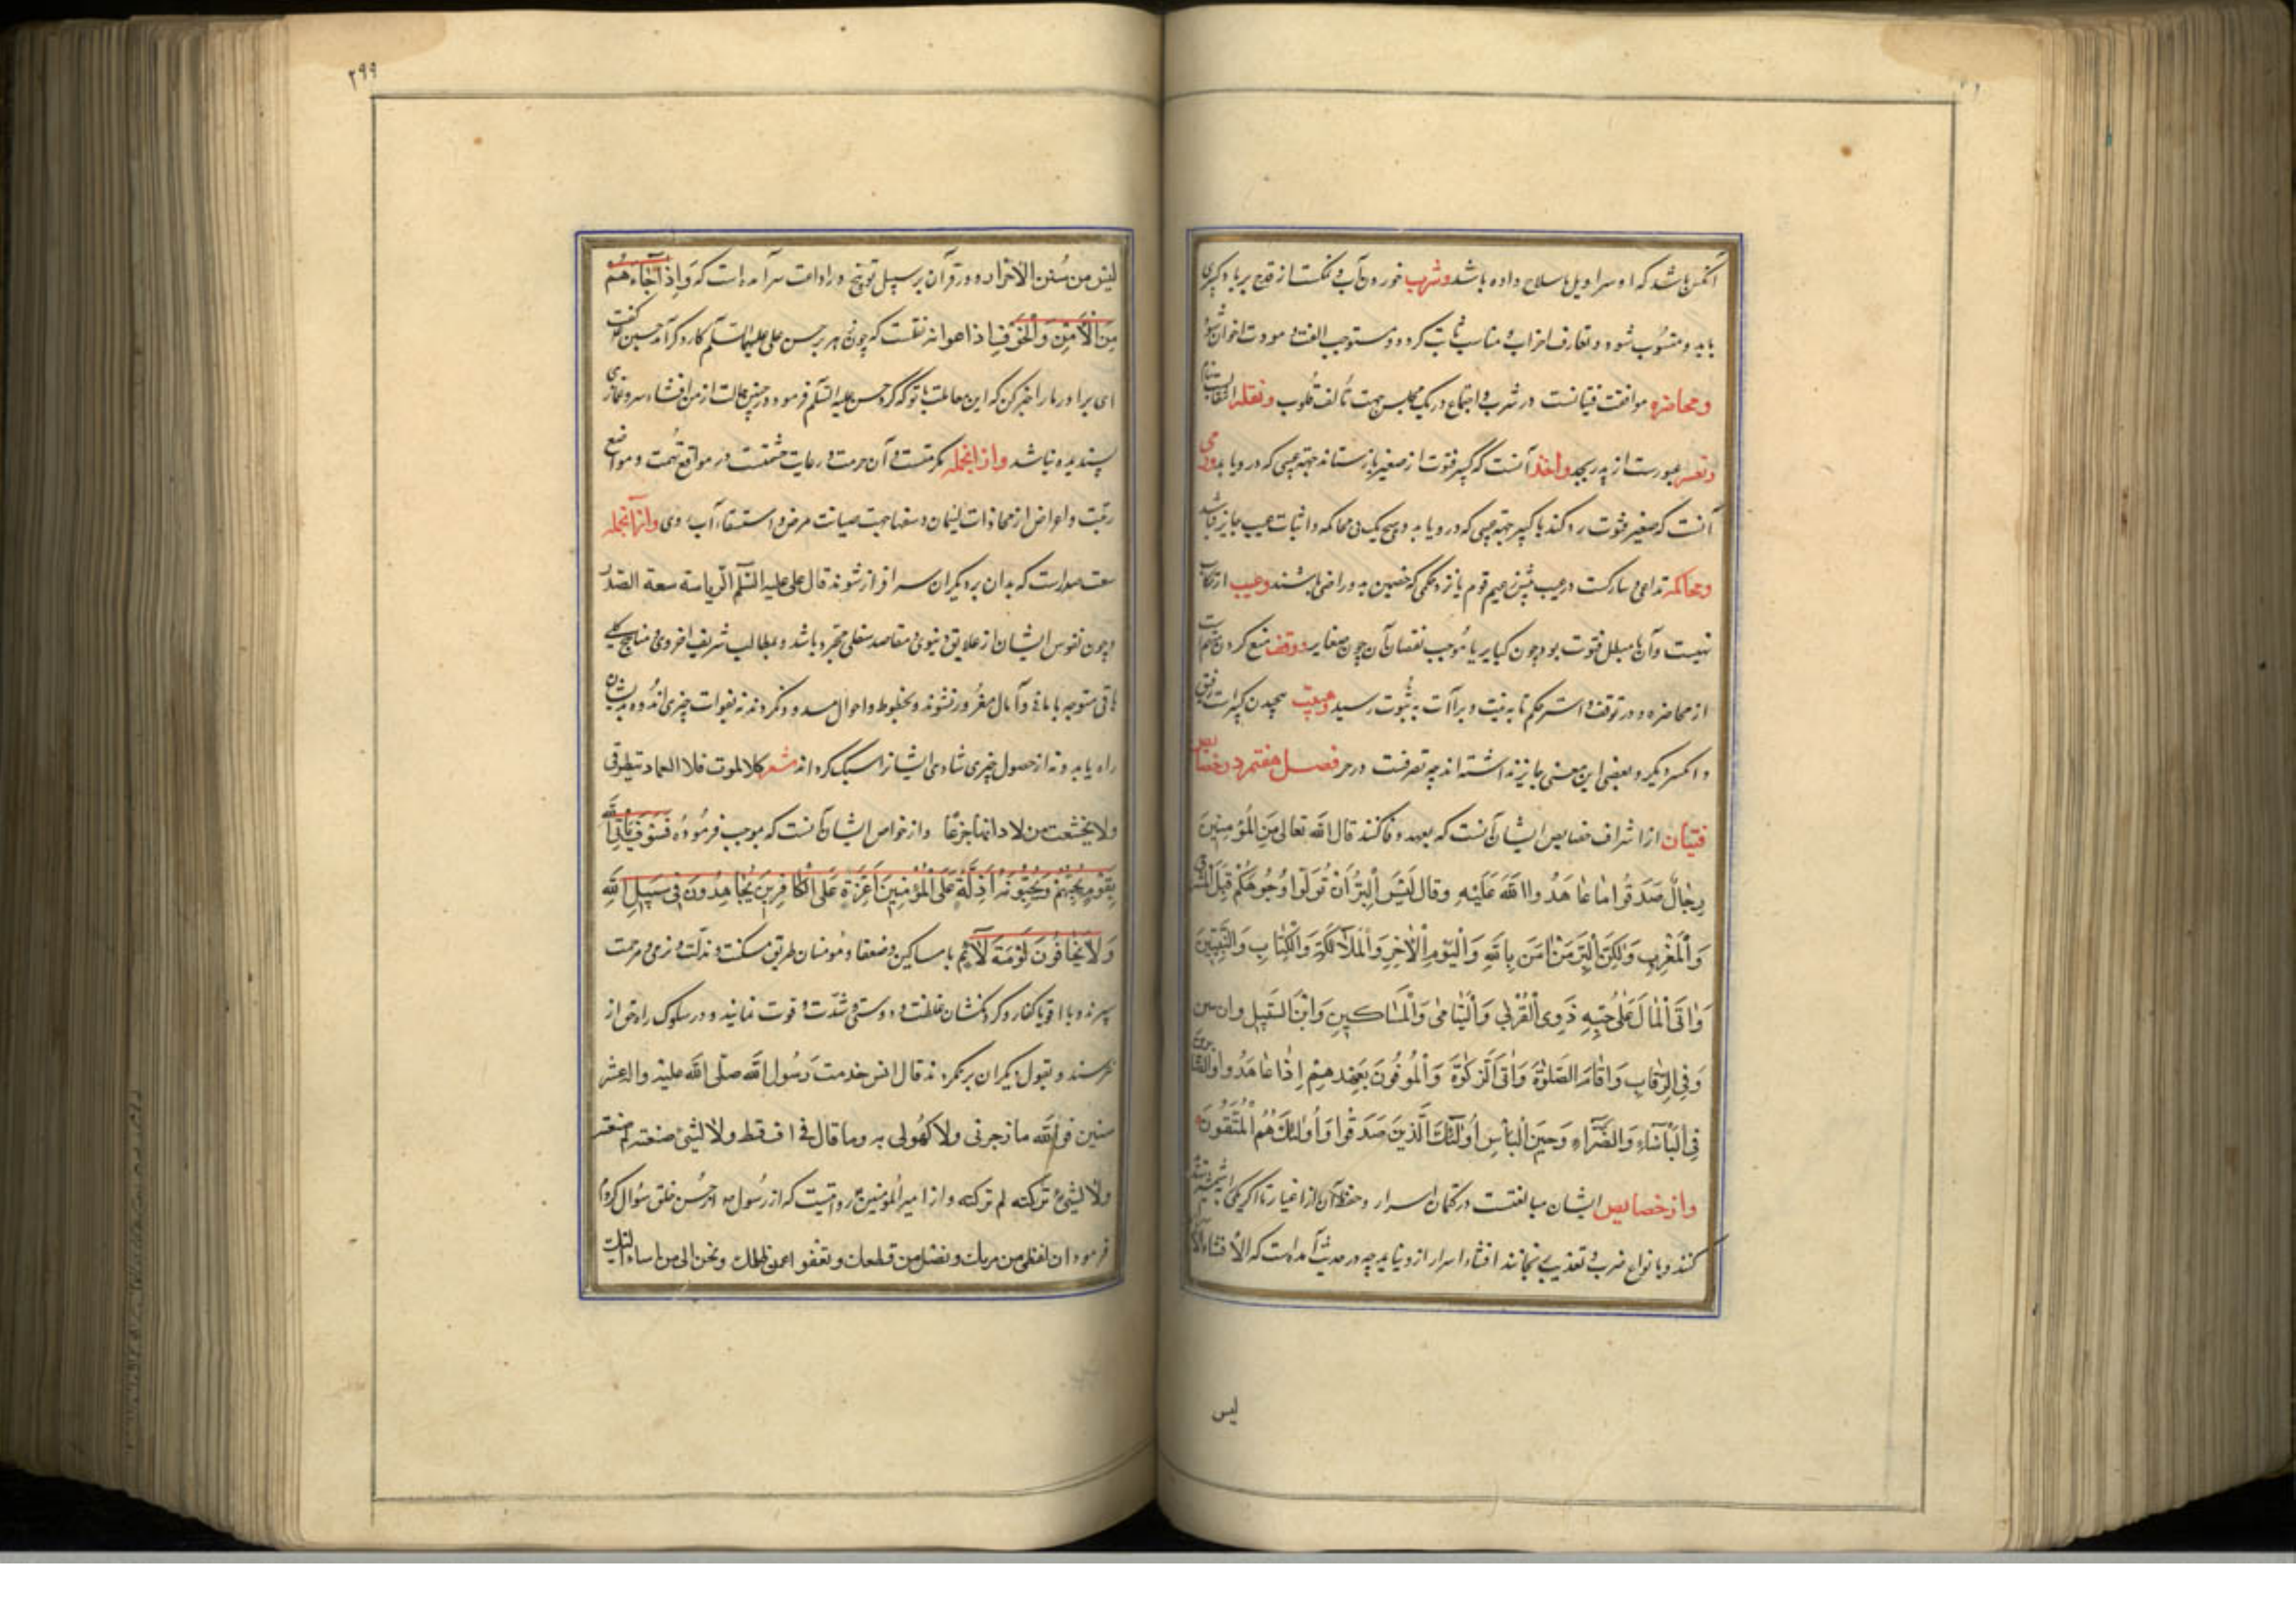 آنکس باشد که او سراویل یا سلاح داده باشد و شرب خوردن آب و نمکست از قدح بر یاد کبیری
باید و منسوب شود و تعارف احزاب مناسب ثابت گردد و مستوجب الفت و مودت اخوان شود
و محاضره موافقت فتیانست در شرب و اجتماع در یک مجلس جهت تألف قلوب و نقله
عبورست از پدر بجد و اخذ آنست که کبیر فتوت از صغیر بازستاند جهة عیبی که در و یابد و رمی
آنست که صغیر فتوت رد کند با کبیر جهة عیبی که در و یابد و هیچ یک بی محاکمه و اثبات عیب جایز نباشد
و محاکمه تداعی و مشارکت در عیب پیش زعیم قوم یا نزد حکمی که خصمین بدو راضی باشند و عیب ارتکاب
نهیست و آن یا مبطل فتوت بود چون کبایر یا موجب نقصان آن چون صغایر و وقف منع کردن متهم است
از محاضره و در توقف داشتن حکم تا بدیت و براآت به ثبوت رسید و هبت بخشیدن کبیرست رفیق
را بکسی دیگر و بعضی این معنی جایز نداشته‌اند چه تصرفست در حر فصل هفتم در خصایص
فتیان از اشراف خصایص ایشان آنست که بعهد وفا کنند قال الله تعالی مِنَ المُؤمِنِینَ
رِجالٌ صَدَقُوا ما عاهَدُوا اللهَ عَلَیْهِ وقال لَیْسَ الْبِرُّ اَنْ تُوَلُّوا وُجُوهَکُمْ قِبَلَ الْمَشْرِقِ
وَالْمَغْرِبِ وَلٰکِنَّ الْبِرَّ مَنْ اٰمَنَ بِاللهِ وَالْیَوْمِ الْاٰخِرِ وَالْمَلآئِکَةِ وَالْکِتابِ وَالنَّبِیّینَ
وَاٰتَی الْمالَ عَلٰی حُبِّهِ ذَوِی الْقُرْبٰی وَالْیَتامٰی وَالْمَساکینِ وَابْنَ السَّبیلِ والسائلین
وَفِی الرِّقابِ وَاَقامَ الصَّلوٰةَ وَاٰتَی الزَّکوٰةَ وَالْمُوفُونَ بِعَهْدِهِمْ اِذا عاهَدُوا وَالصّابرین
فِی الْبَأْسآءِ وَالضَّرَّآءِ وَحِینَ الْبَأْسِ اُولٰئِکَ الَّذینَ صَدَقُوا وَاُولٰئِکَ هُمُ الْمُتَّقُونَ
و از خصایص ایشان مبالغتست در کتمان اسرار و حفظ آن از اغیار تا اگر یکی را بشمشیر تهدید
کنند و بانواع ضرب و تعذیب برنجانند افشاء اسرار ازو نیاید چه در حدیث آمده است که الافشاء
لیس
۲۹۹
لیس من سُنن الاحرار و در قرآن بر سبیل توبیخ در اذاعت سر آمده است که وَاِذا جآءَهُمْ
مِنَ الْاَمْنِ وَالْخَوْفِ اذاعوا به نقلست که چون زهر بر حسن علی علیهماالسلم کارگر آمد حسین علی گفت
ای برادر مارا خبر کن که این معاملت با تو که کرد حسن علیه السلم فرمود در چنین حالت از من افشاء سر و غمازی
پسندیده نباشد و از آنجمله کرمتست و آن حرمت و رعایت حشمتست در مواقع تهمت و مواضع
ریبت و اعراض از محاذات لئیمان و سفها جهت صیانت عرض و استبقاء آب روی و از آنجمله
سعت صدرست که بدان بر دیگران سرافراز شوند قال علی علیه السلم الریاسة سعة الصدر
و چون نفوس ایشان از علایق دنیوی و مقاصد سفلی مجرد باشد و بمطالب شریف اخروی و مناهج کلی
باقی متوجه با مانی و آمال مغرور نشوند و بحظوظ و احوال مسرور نگردند نه بفوات چیزی اندوه بدیشان
راه یابد و نه از حصول چیزی شادی ایشانرا سبک گرداند شعر کلا لموت فلا النعماء تبطرنی
ولا تخشعت من لاوائها جزعا و از خواص ایشان آنست که بموجب فرموده فَسَوْفَ یَأْتِی اللهُ
بِقَوْمٍ یُحِبُّهُمْ وَیُحِبُّونَهُ اَذِلَّةٍ عَلَی الْمُؤْمِنِینَ اَعِزَّةٍ عَلَی الْکافِرِینَ یُجاهِدُونَ فی سَبیلِ اللهِ
وَلا یَخافُونَ لَوْمَةَ لآئِمٍ با مساکین و ضعفا و مؤمنان طریق مسکنت و ذلت و نرمی و مرحمت
سپرند و با اقویا کفار و گردنکشان غلظت و درشتی و شدت و قوت نمایند و در سلوک راه حق از
نترسند و بقول دیگران برنگردند قال انس خدمت رسول الله صلی الله علیه واله عشر
سنین فوالله ما زجرنی ولا کهولی به وما قال لی اف قط ولا لشیء صنعته لم صنعته
ولا لشیء ترکته لم ترکته و از امیرالمؤمنین روایتست که از رسول از حسن خلق سؤال کردم
فرمود ان تعطی من حرمك وتصل من قطعك وتعفو عمن ظلمك وتحسن الی من اساء الیك